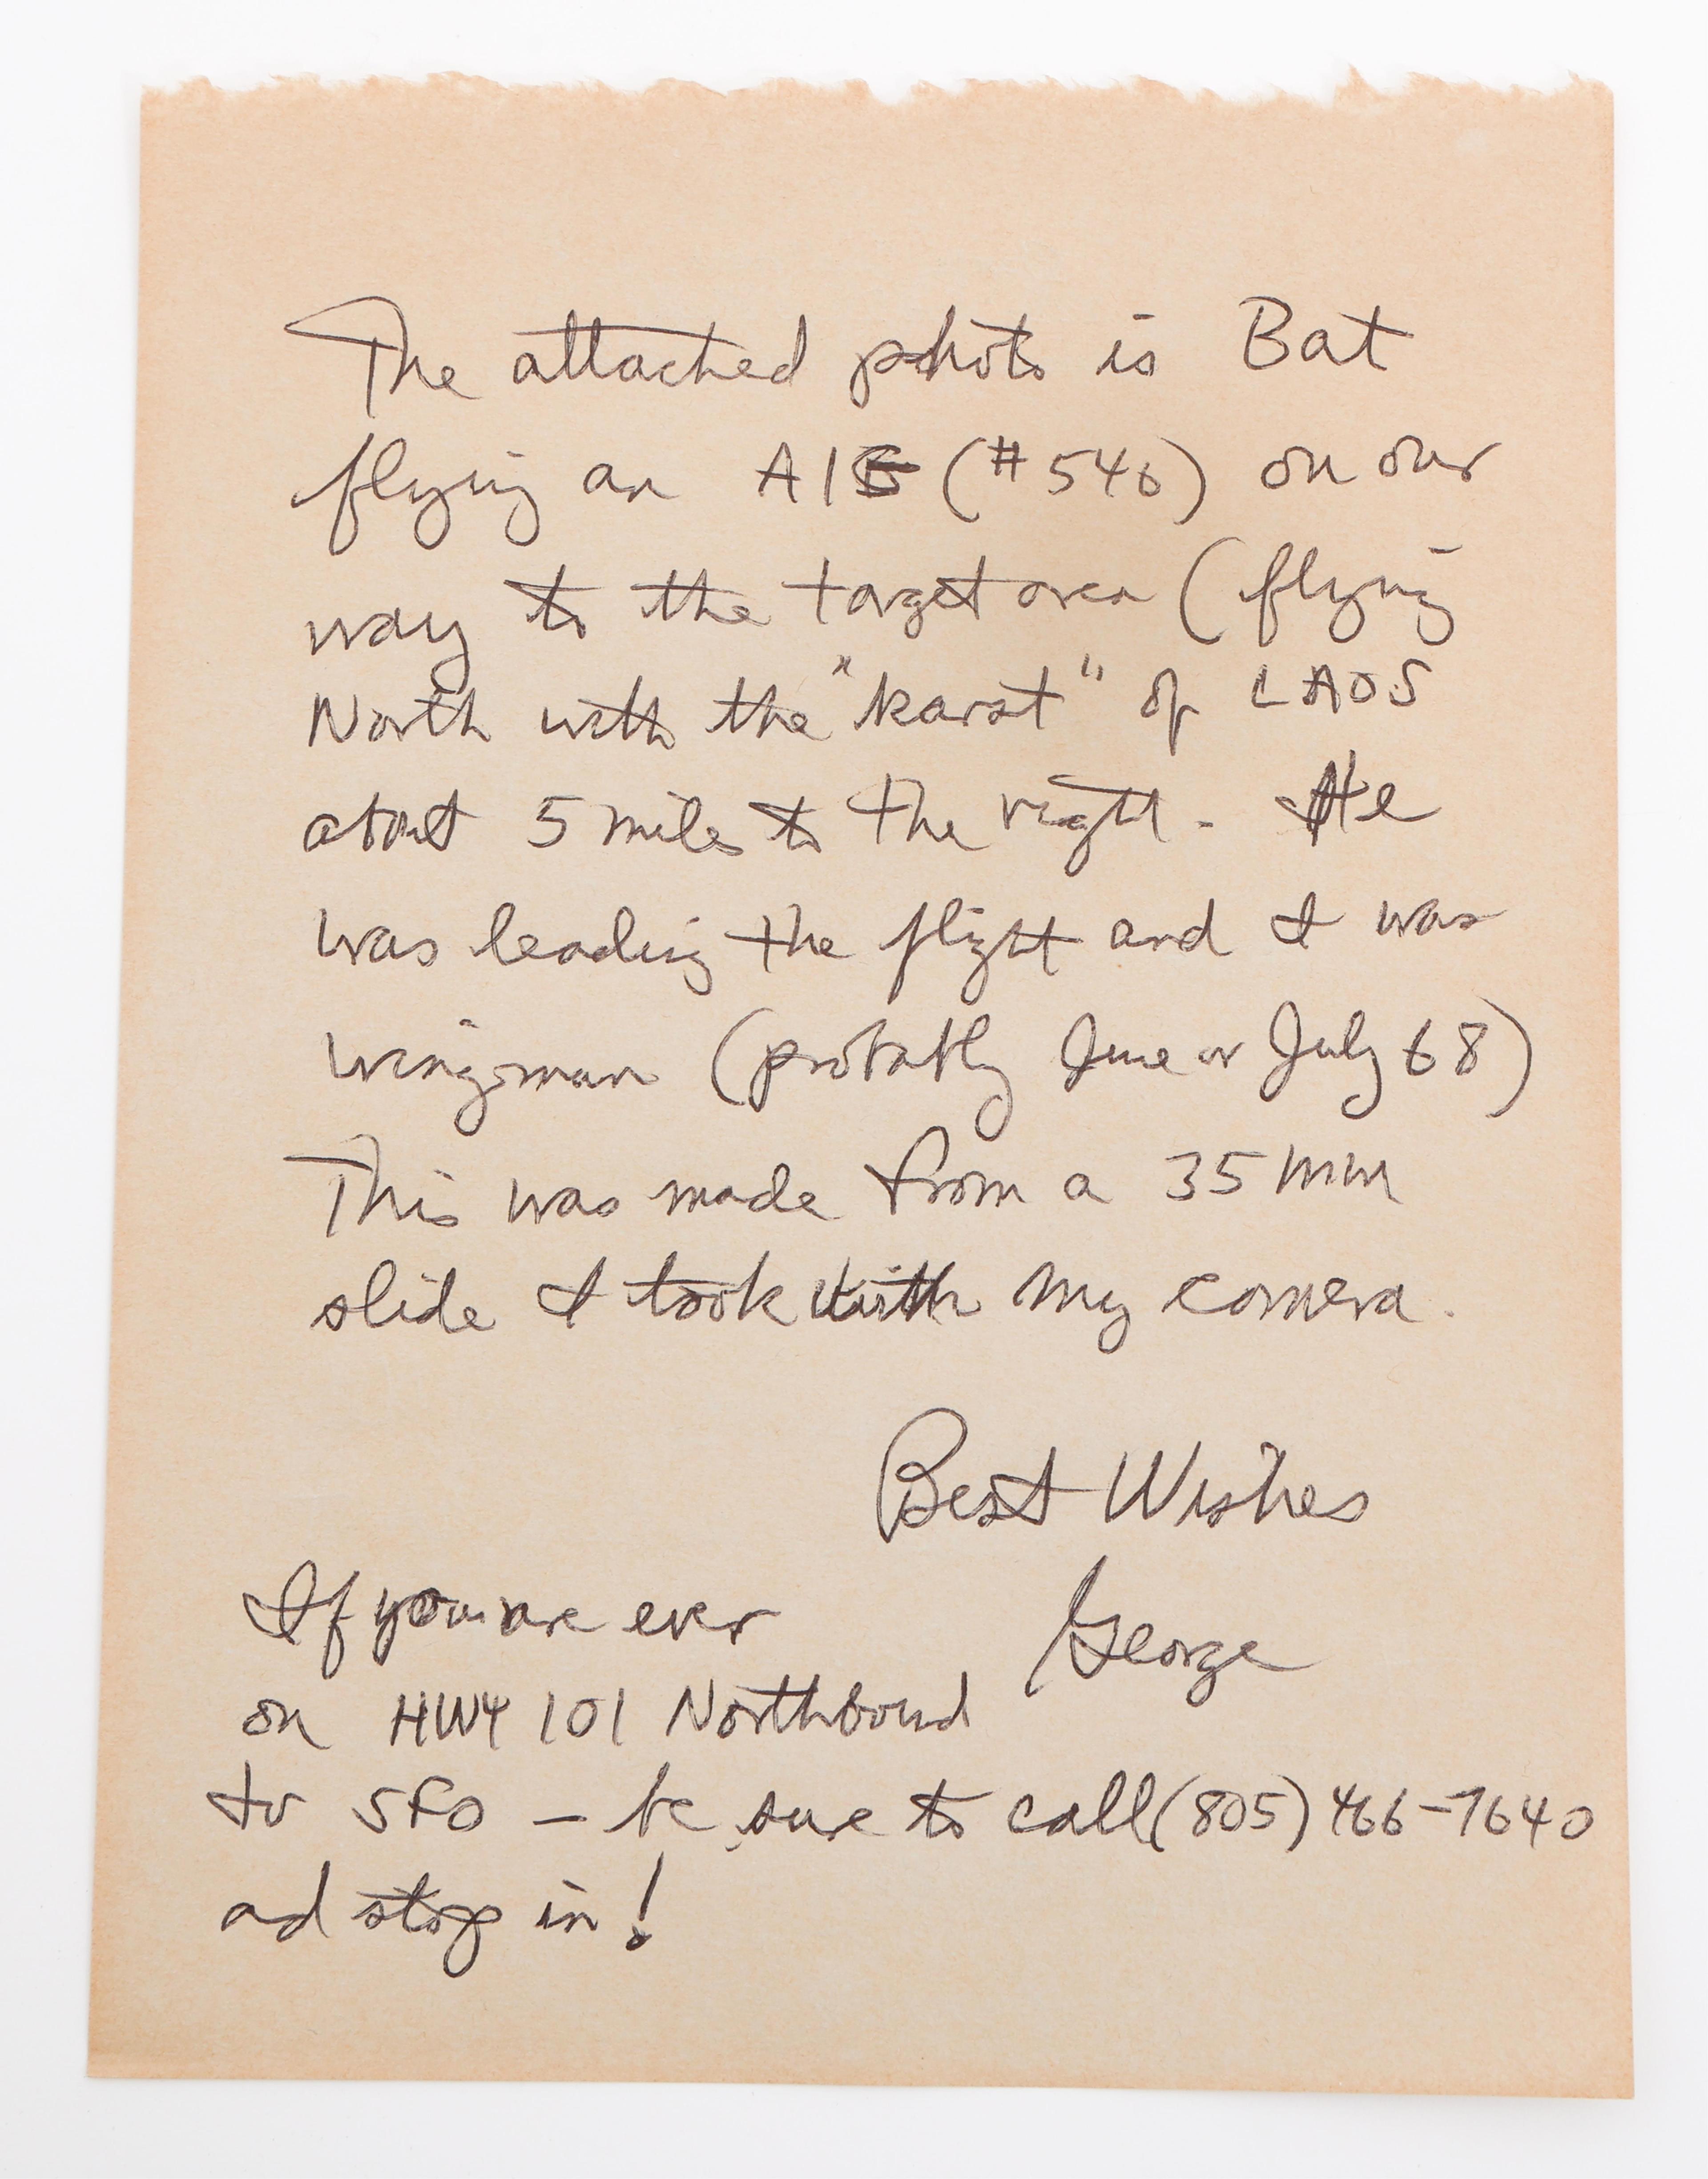 The attached photo is Bat
flying an A1E (#546) on our
way to the target area (flying
North with the "karst" of LAOS
about 5 miles to the right. He
was leading the flight and I was
wingman (probably June or July 68)
This was made from a 35 mm
slide I took with my camera.
Best Wishes
George
If you are ever
on HWY 101 Northbound
to SFO - be sure to call (805) 466-7640
ad stop in!